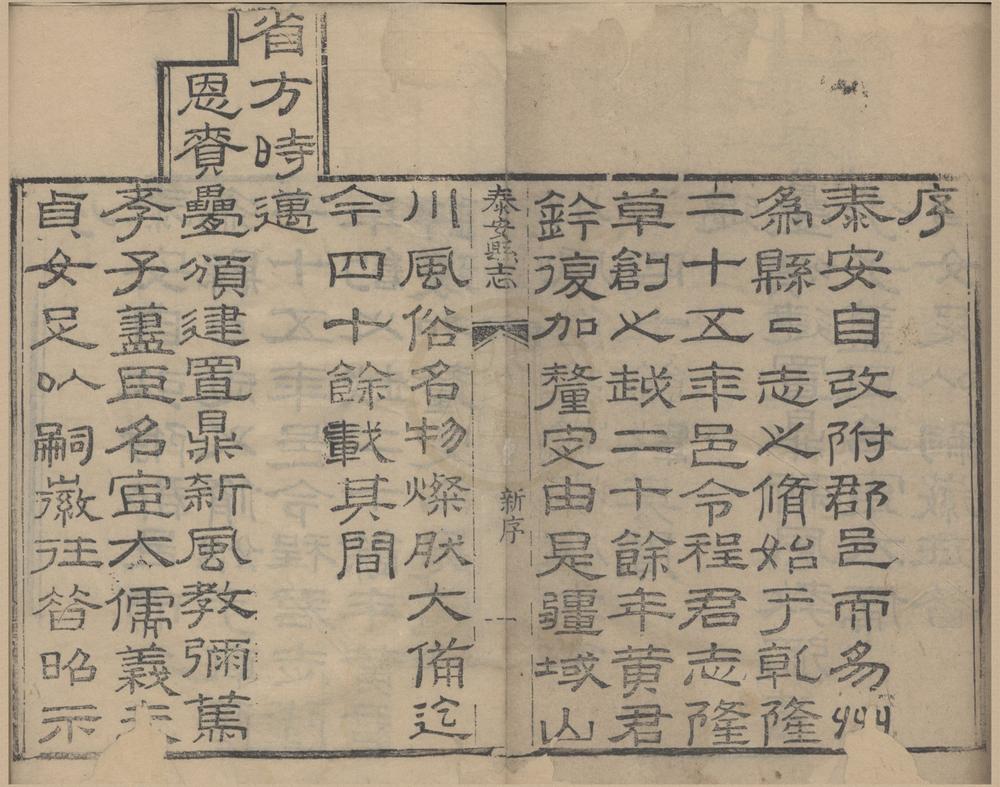 序
泰安自改附郡邑而易州
爲縣二志之脩始于乹隆
二十五年邑令程君志隆
草創之越二十餘年黄君
鈐復加釐定由是疆域山
泰安縣志
新序
一
川風俗名物燦然大備迄
今四十餘載其間
省方時邁
恩賚疊頒建置鼎新風教彌篤
孝子藎臣名宦大儒義夫
貞女足以嗣徽往昔昭示